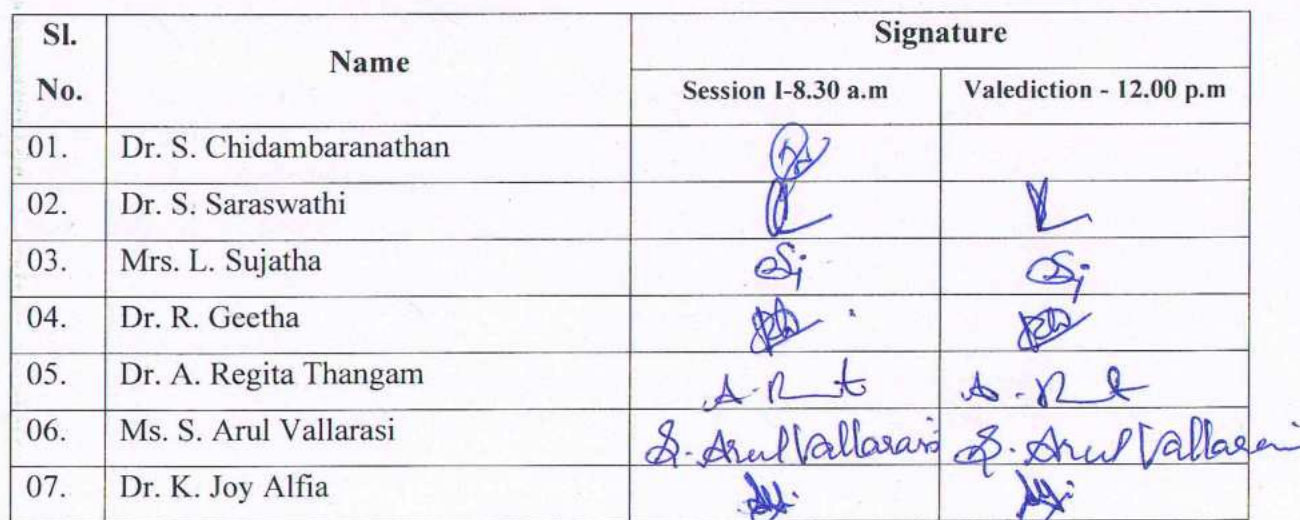 Sl. No. Name Signature
Session I-8.30 a.m Valediction - 12.00 p.m
01. Dr. S. Chidambaranathan
02. Dr. S. Saraswathi
03. Mrs. L. Sujatha
04. Dr. R. Geetha
05. Dr. A. Regita Thangam
06. Ms. S. Arul Vallarasi S. Arul Vallarasi S. Arul Vallarasi
07. Dr. K. Joy Alfia